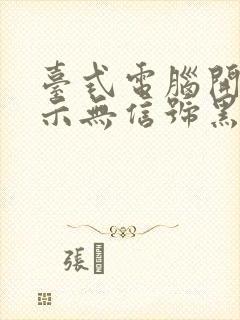 臺式電腦開
示無信號黑
張